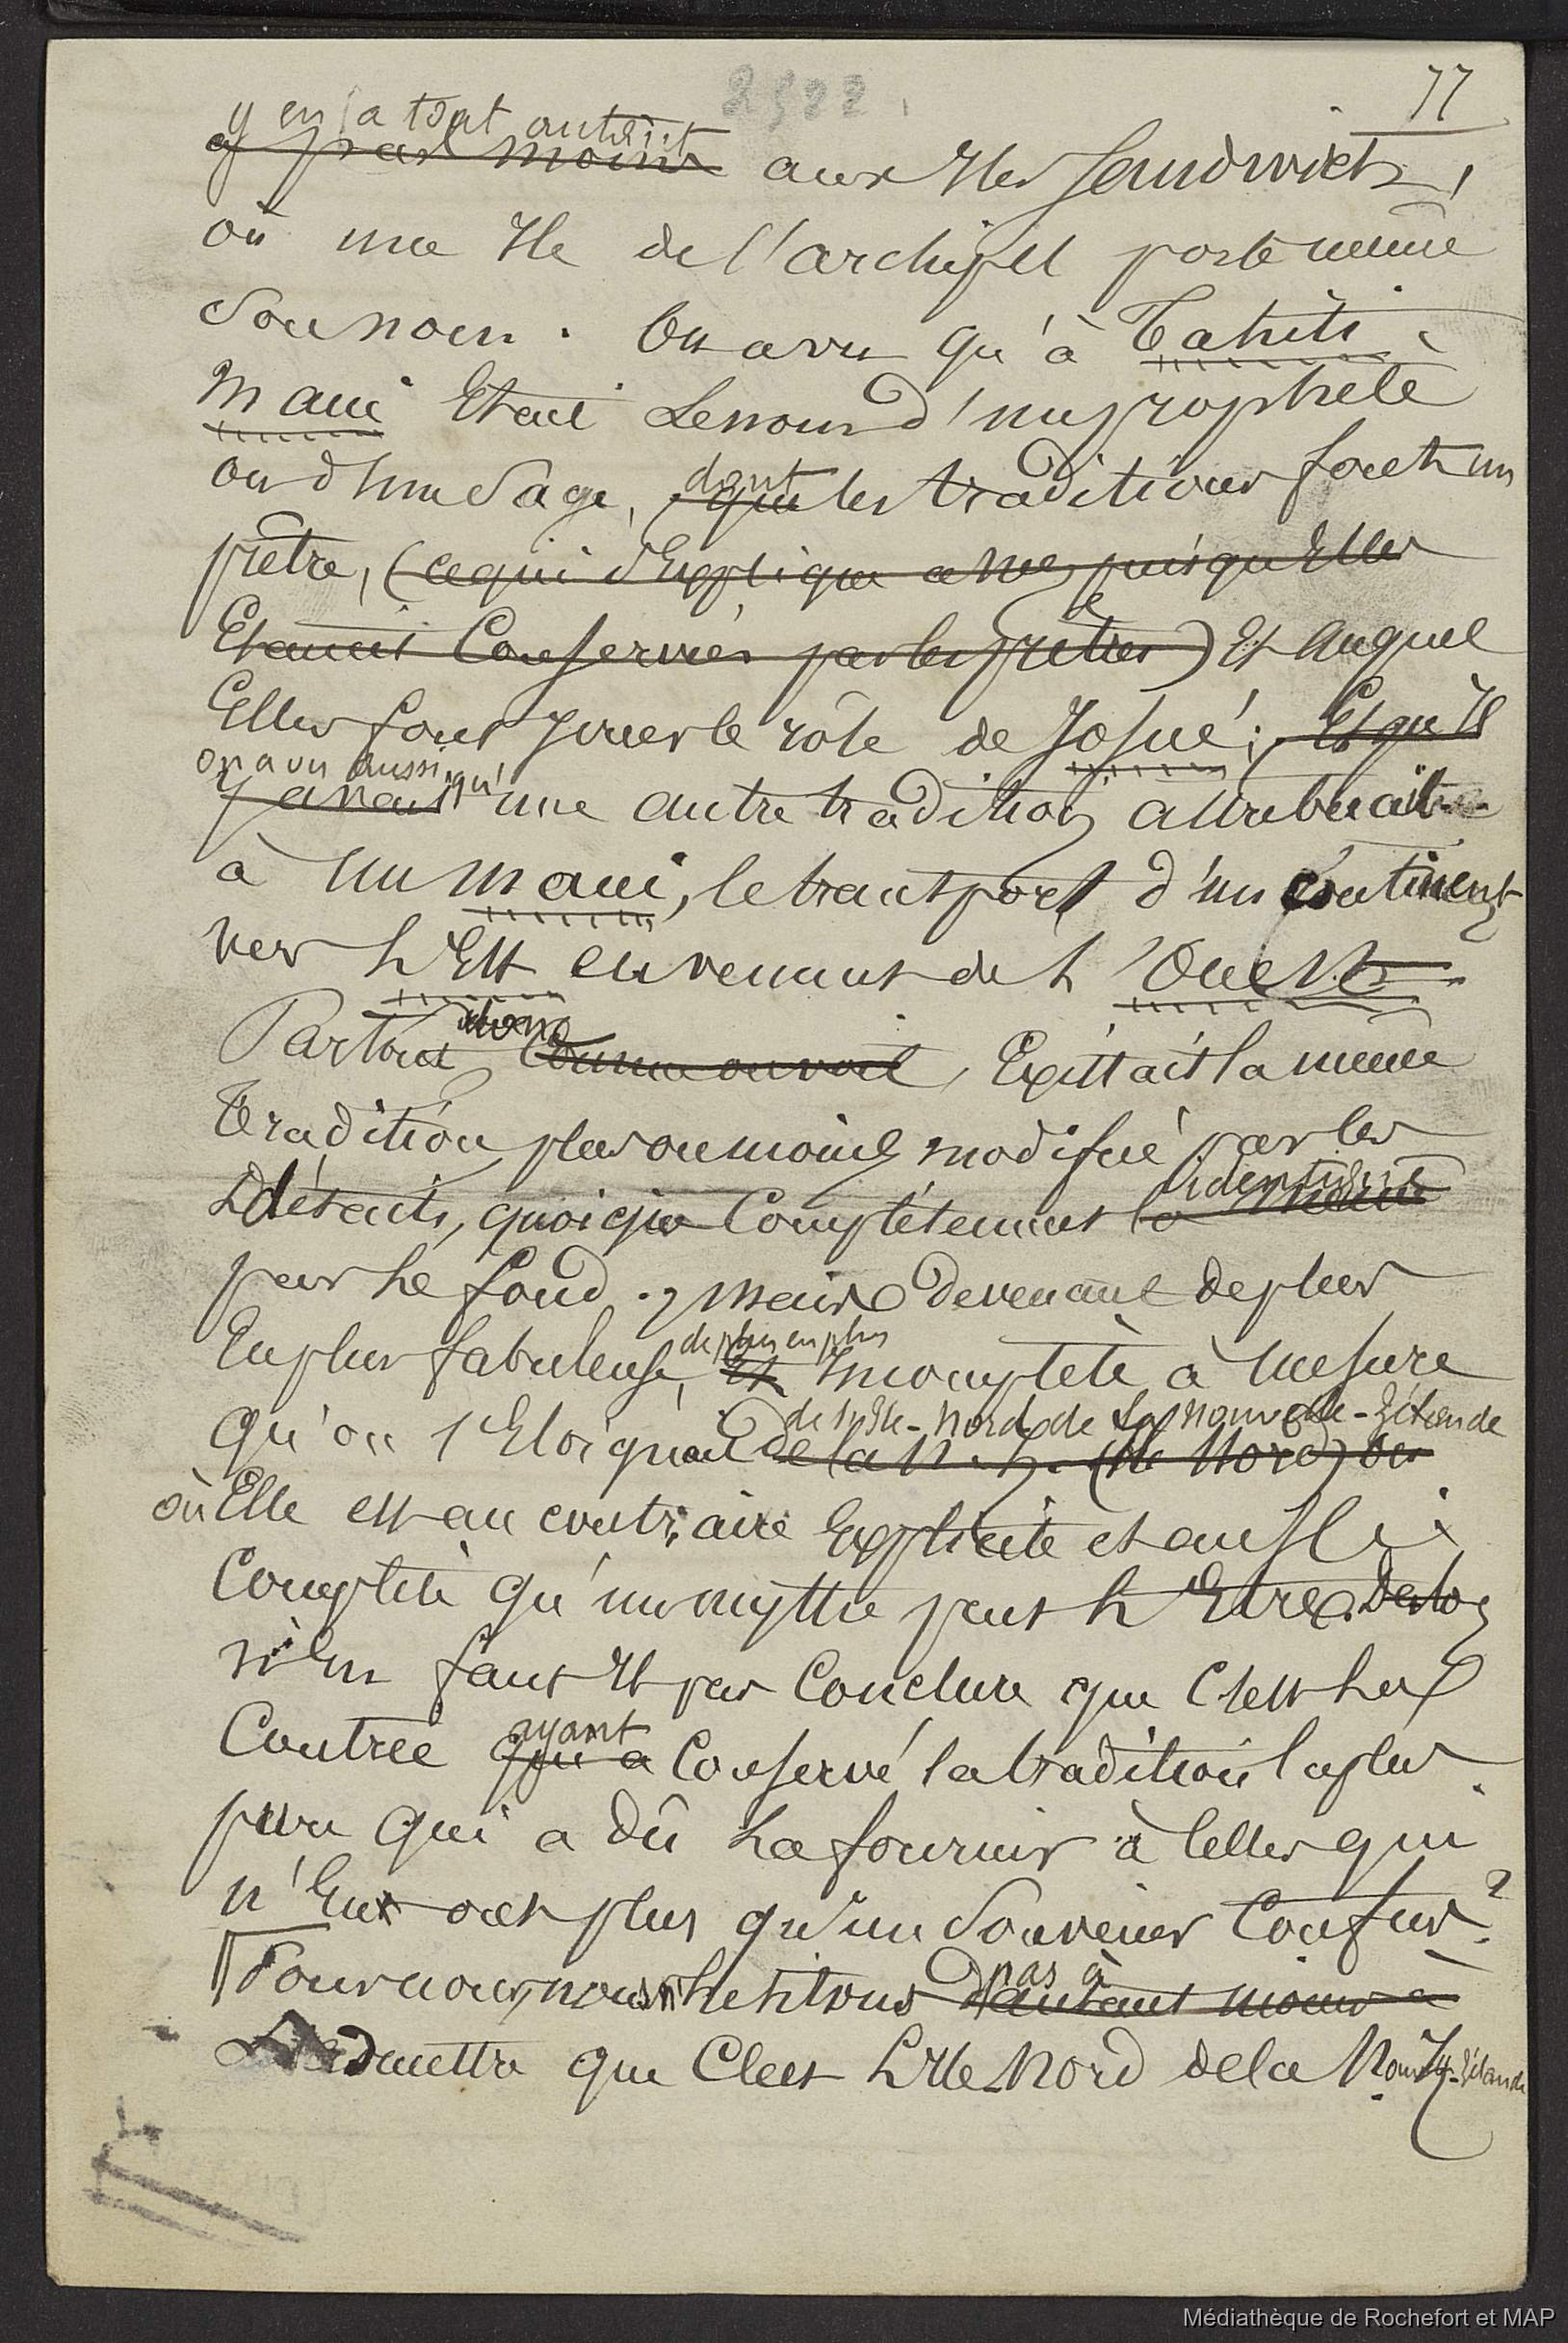 2522
77
y en a tout autant
y pas moins aux Iles Sandwich,
où une Ile de l'archipel porte même
son nom. On a vu qu'à Tahiti
Maui Etait le nom d'un prophète
ou d'un sage, dont
que les traditions font un
prêtre, (ce qui s'explique assez puisqu'Elles
Etaient Conservées par les prêtres) Et auquel
Elles font jouer le rôle de Josué; Et qu'Il
on a vu aussi qu'
y avait une autre tradition attribuait
à un Maui, le transport d'un continent
vers l'Est en venant de l'Ouest.
Partout donc
comme on voit, Existait la même
tradition plus ou moins modifiée par les
détails, quoique Complétement identique
la même
par le fond; mais devenant de plus
En plus fabuleuse, de plus en plus
et incomplète à mesure
qu'on s'Eloignait de l'Ile-Nord de la Nouvelle-Zélande
de la N. Z. (Ile Nord) ou
où Elle est au contraire Explicite et aussi
Complète qu'un mythe peut l'Etre. Delà
n'En faut Il pas Conclure que C'est la
Contrée ayant
qui a Conservé la tradition la plus
pure qui a dû la fournir à Celles qui
n'En ont plus qu'un souvenir Confus?
Pour nous, nous n'hésitons pas à
d'autant moins à
admettre que C'est l'Ile Nord de la Nouv-Zélande
Médiathèque de Rochefort et MAP